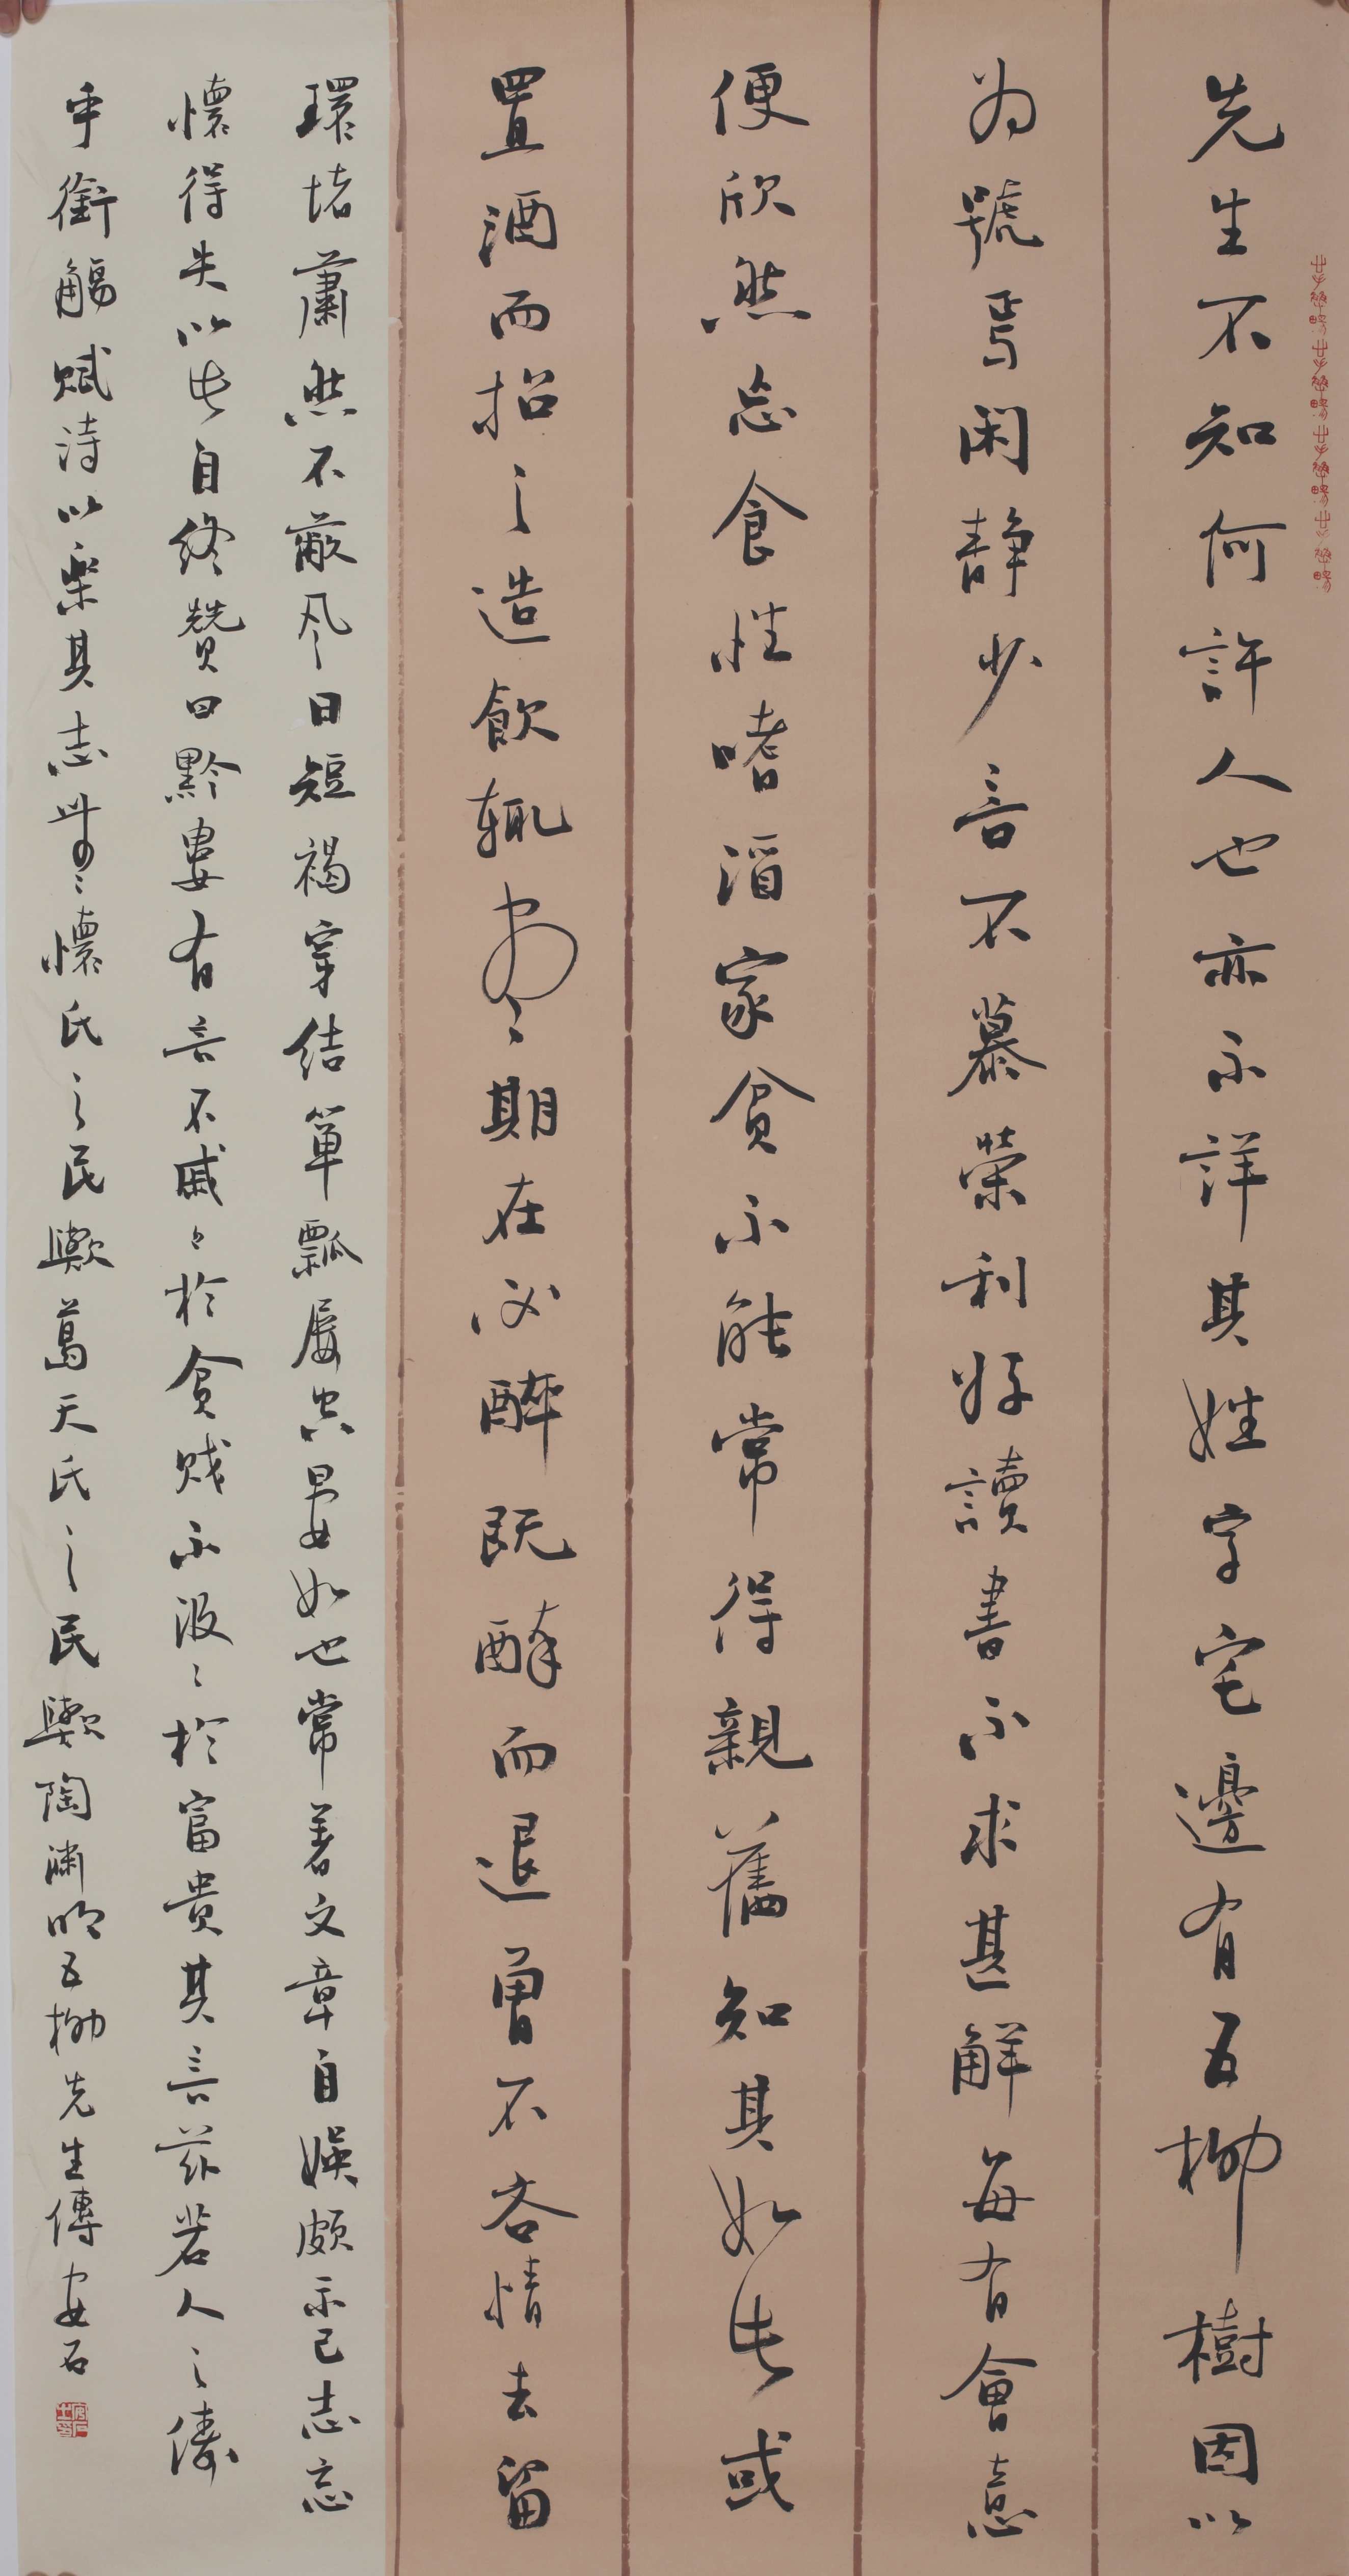 先生不知何許人也亦不詳其姓字宅邊有五柳樹因以
为號焉闲静少言不慕榮利好讀書不求甚解每有會意
便欣然忘食性嗜酒家貧不能常得親舊知其如此或
置酒而招之造飲輒盡期在必醉既醉而退曾不吝情去留
環堵蕭然不蔽風日短褐穿結簞瓢屢空晏如也常著文章自娛頗示己志忘
懷得失以此自終贊曰黔婁有言不戚々於貧賤不汲々於富貴其言茲若人之儔
乎銜觴賦詩以樂其志無懷氏之民歟葛天氏之民歟陶淵明五柳先生傳安石